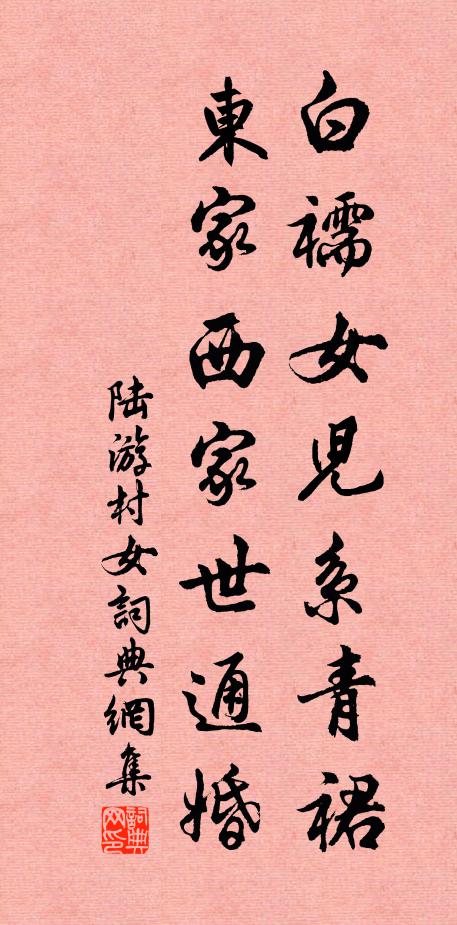 白襦女兒系青裙
東家西家世通婚
陸游村女詞典網集
詞典网印